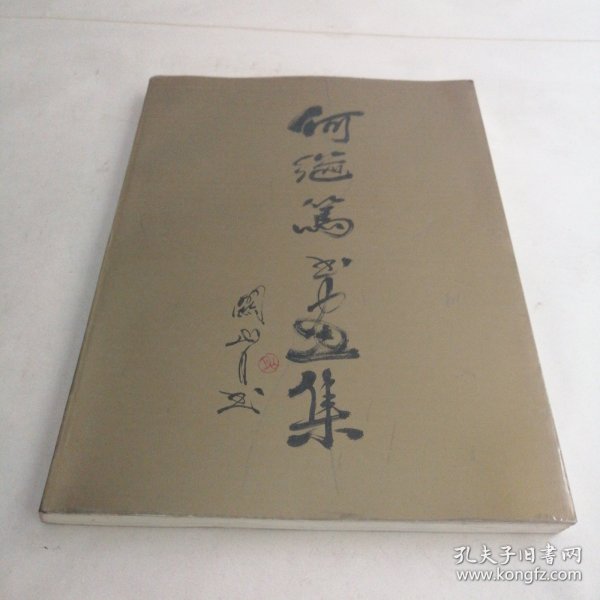 何继笃书画集
关山月书
孔夫子旧书网
www.kongfz.com